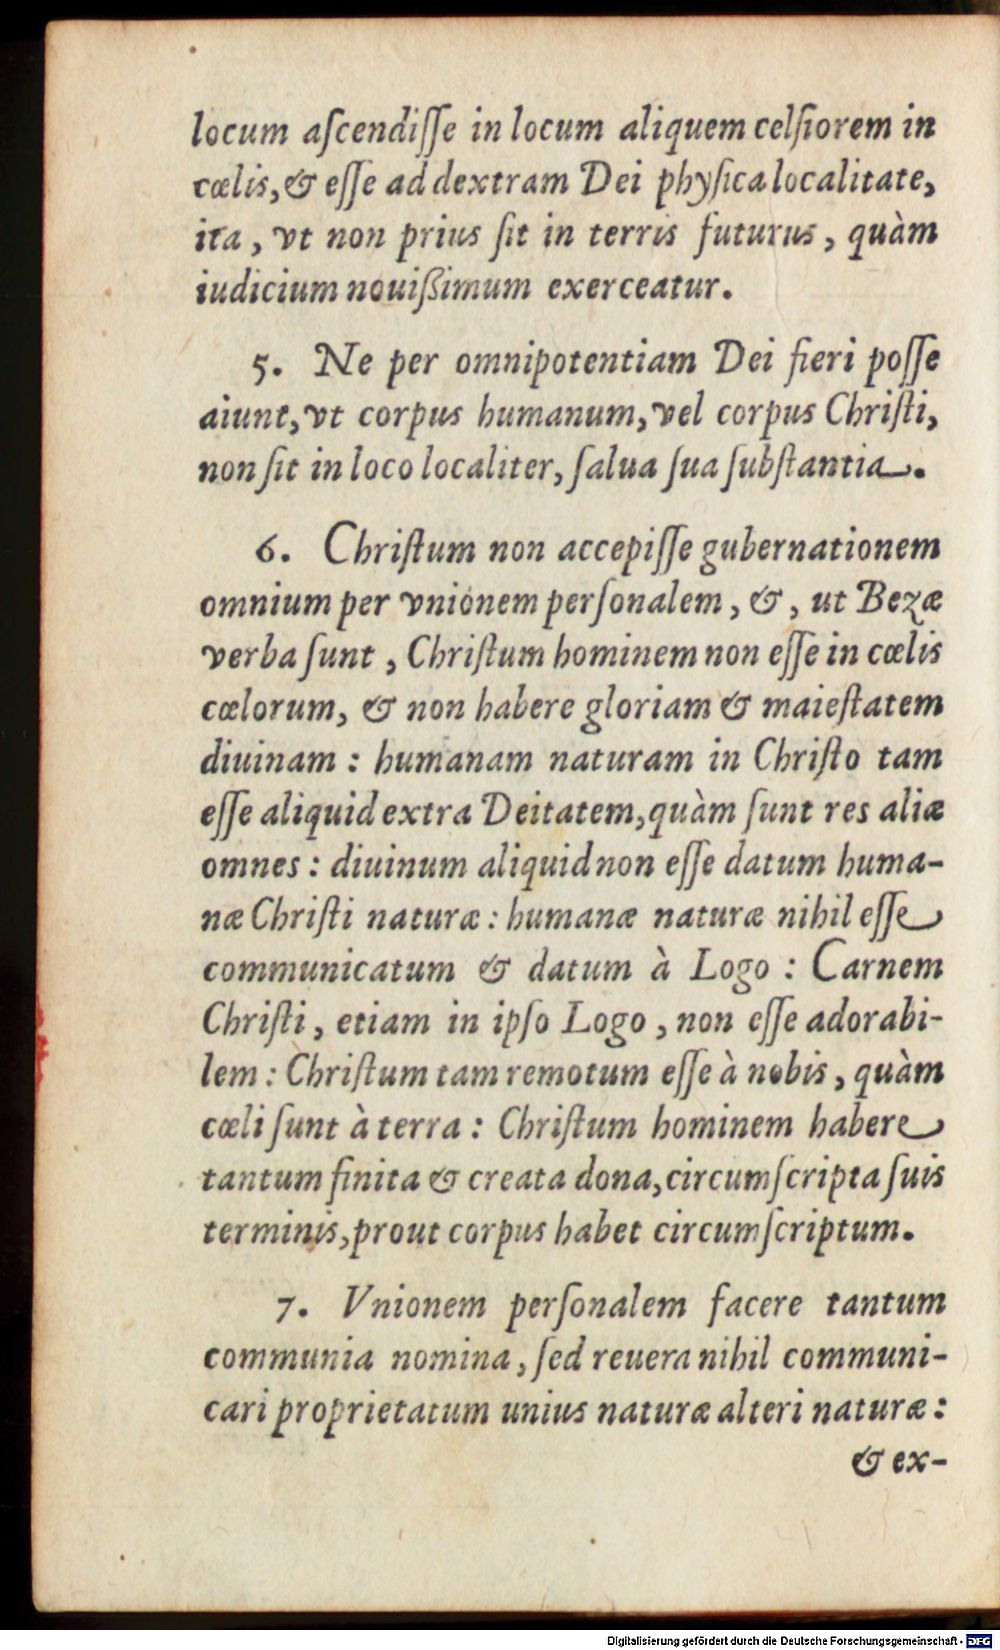 locum aſcendiſſe in locum aliquem celſiorem in
cœlis, & eſſe ad dextram Dei phyſica localitate,
ita, vt non prius ſit in terris futurus, quàm
iudicium nouißimum exerceatur.
5. Ne per omnipotentiam Dei fieri poſſe
aiunt, vt corpus humanum, vel corpus Chriſti,
non ſit in loco localiter, ſalua ſua ſubſtantia.
6. Chriſtum non accepiſſe gubernationem
omnium per vnionem perſonalem, &, ut Bezæ
verba ſunt, Chriſtum hominem non eſſe in cœlis
cœlorum, & non habere gloriam & maieſtatem
diuinam: humanam naturam in Chriſto tam
eſſe aliquid extra Deitatem, quàm ſunt res aliæ
omnes: diuinum aliquid non eſſe datum huma-
næ Chriſti naturæ: humanæ naturæ nihil eſſe
communicatum & datum à Logo: Carnem
Chriſti, etiam in ipſo Logo, non eſſe adorabi-
lem: Chriſtum tam remotum eſſe à nobis, quàm
cœli ſunt à terra: Chriſtum hominem habere
tantum finita & creata dona, circumſcripta ſuis
terminis, prout corpus habet circumſcriptum.
7. Vnionem perſonalem facere tantum
communia nomina, ſed reuera nihil communi-
cari proprietatum unius naturæ alteri naturæ:
& ex-
Digitalisierung gefördert durch die Deutsche Forschungsgemeinschaft - DFG